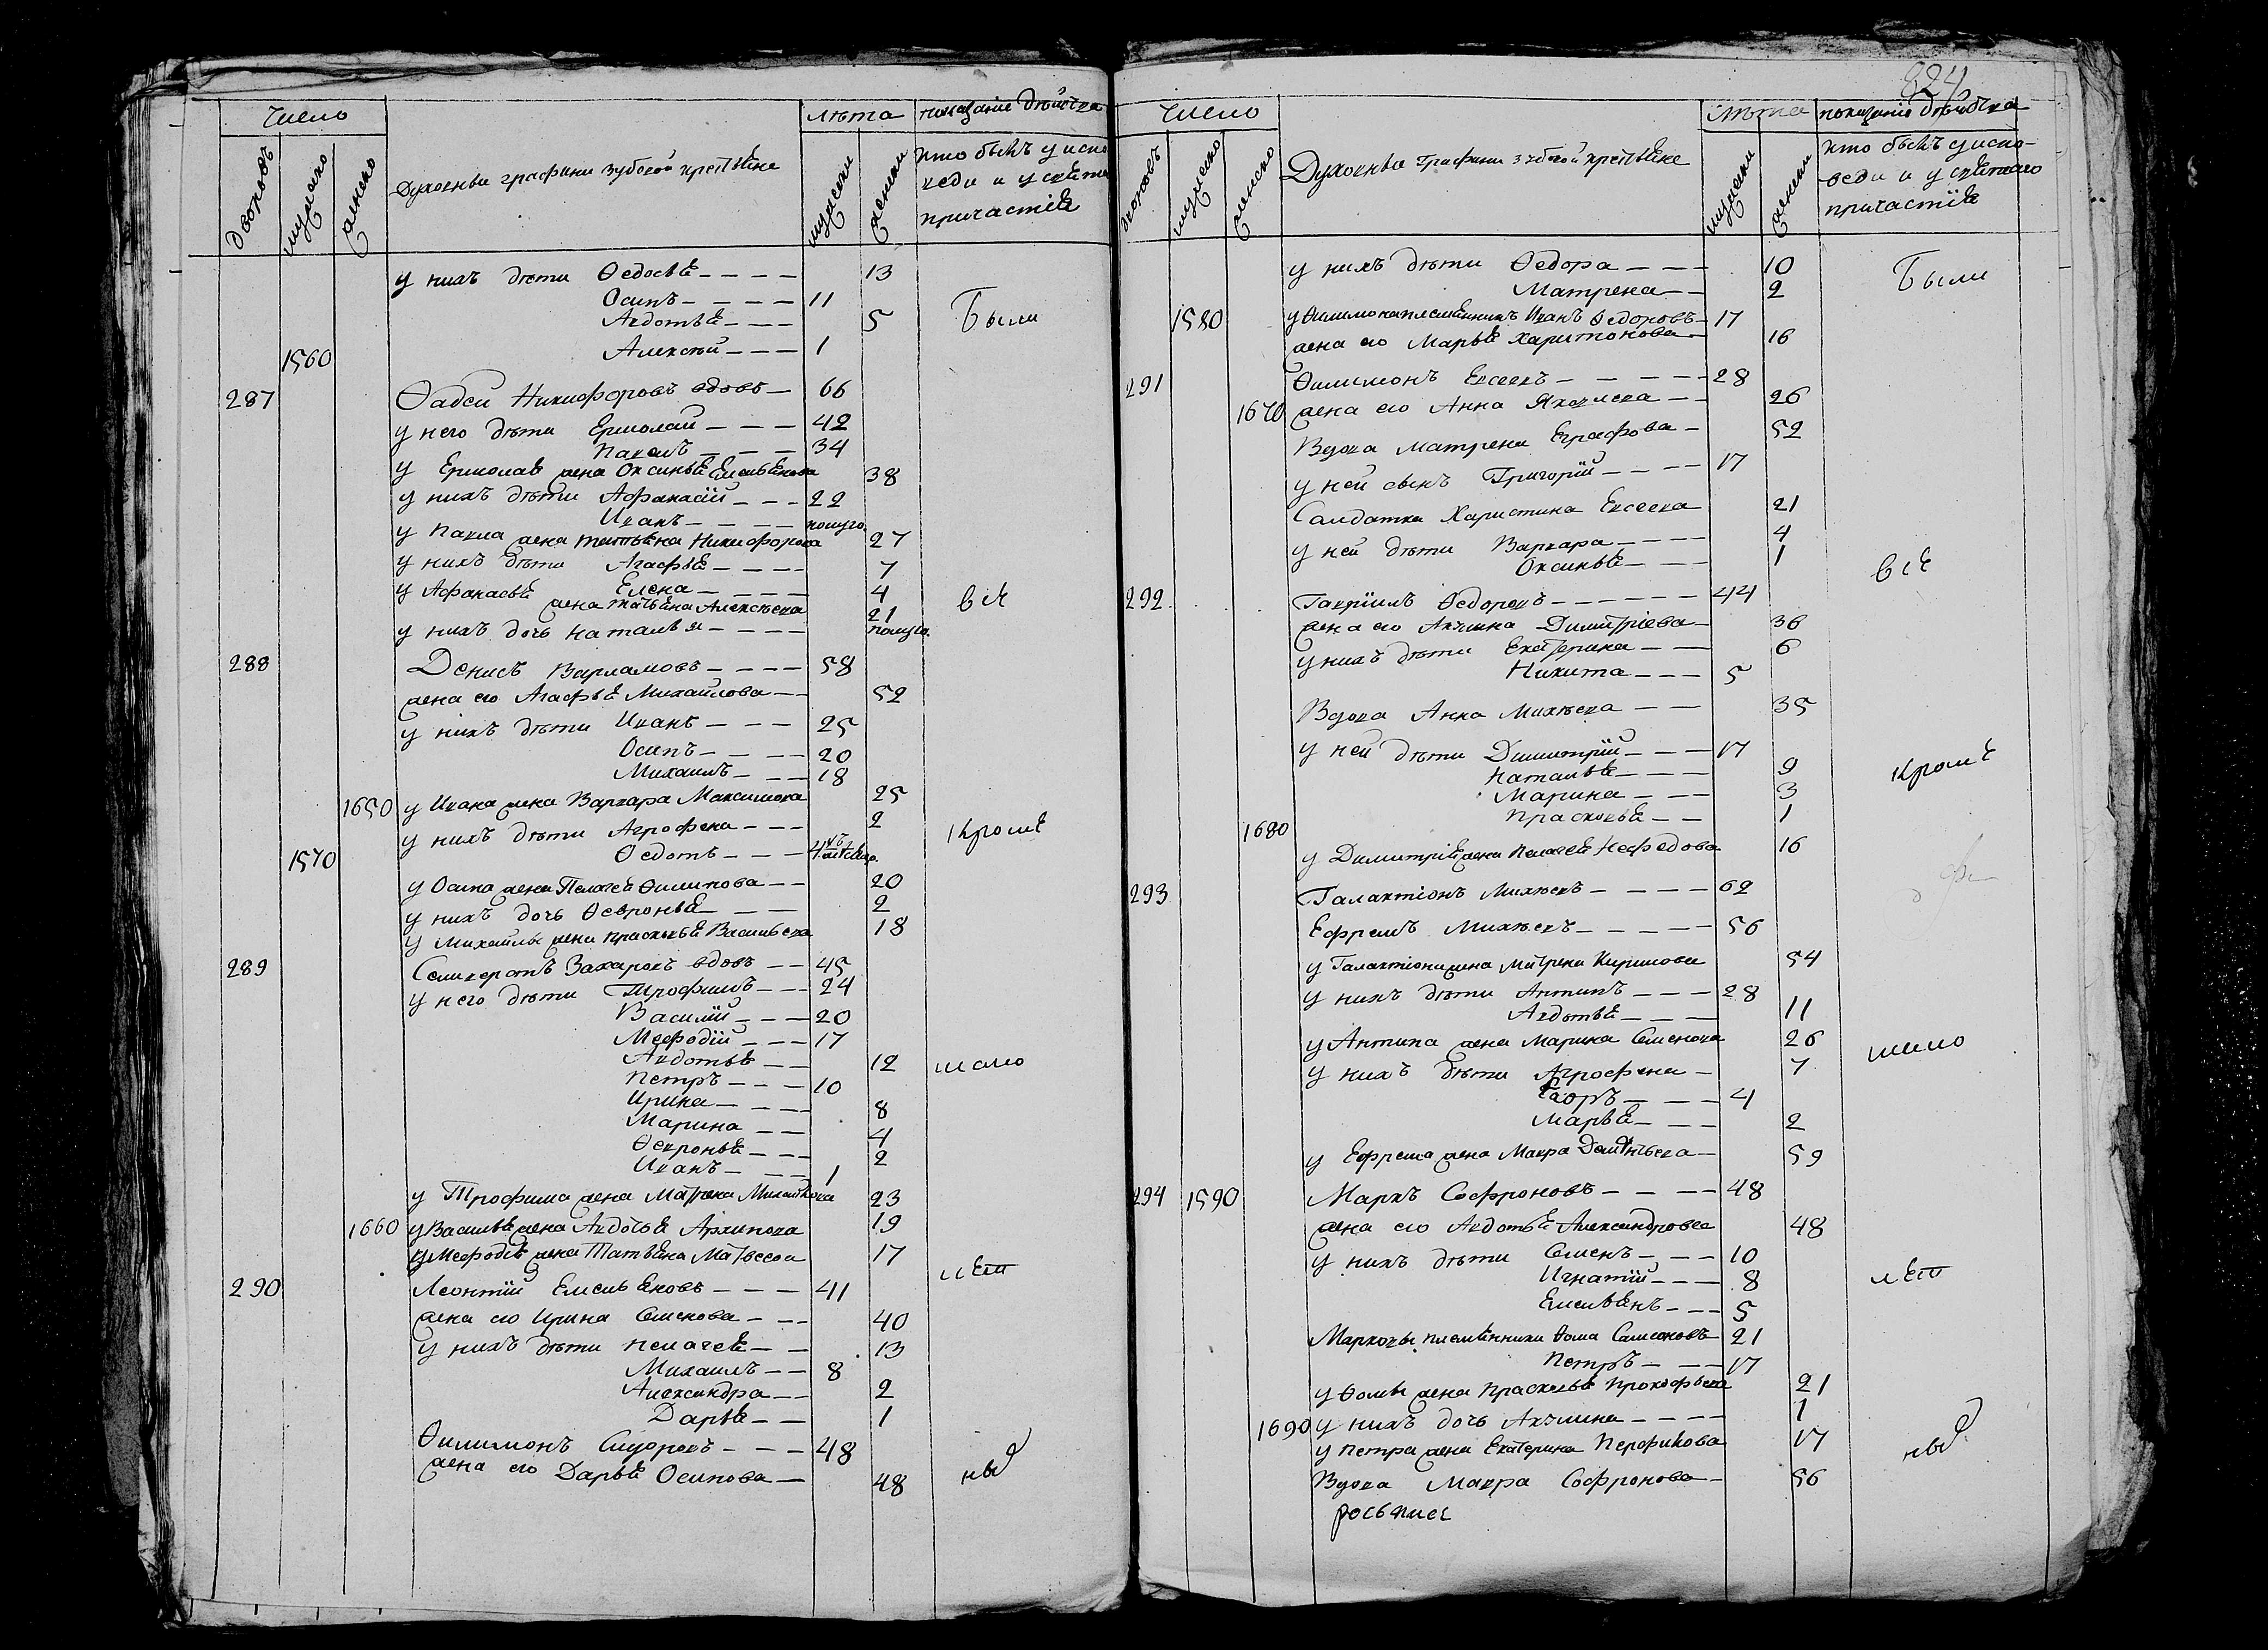 Число
лѣта
показаніе дѣйства
дворовъ
мужеско
женско
Духовны графини Зубовой крестьяне
мужески
женски
кто былъ у испо
веди и у святаго
причастія
у нихъ дѣти Ѳедосья - - - - 13
Осипъ - - - - 11
Авдотья - - - 5
Были
1560 Алексѣй - - - 1
287 Фадей Никифоровъ вдовъ - 66
у него дѣти Ермолай - - - 42
Павелъ - - - 34
у Ермолая жена Оксинья Емельянова 38
у нихъ дѣти Афанасій - - - 22
Иванъ - - - - полуго.
у Павла жена татьяна Никифорова 27
у нихъ дѣти Агафья - - - - 7
Елена - - - - 4
у Афанасья жена татьяна Алексѣева 21
всѧ
у нихъ дочь наталья - - - - полуго.
288 Денисъ Варламовъ - - - - 58
жена его Агафья Михайлова - - 52
у нихъ дѣти Иванъ - - - 25
Осипъ - - - - 20
Михаилъ - - - 18
1650 у Ивана жена Варвара Максимова 25
у нихъ дѣти Агрофена - - - 2
кромѣ
1570 Ѳедотъ - - - 4
у Осипа жена Пелагея Филипова - - 20
у нихъ дочь Ѳевронья - - - 2
у Михайлы жена прасковья Васильева 18
289 Селиверстъ Захаровъ вдовъ - - 45
у него дѣти Трофимъ - - - 24
Василій - - - 20
Меѳодій - - - 17
Авдотья - - 12
мало
Петръ - - - 10
Ирина - - - - 8
Марина - - 4
Ѳевронья - - - 2
Иванъ - - - 1
у Трофима жена Матрена Михайлова 23
1660 у Василья жена Авдотья Архипова 19
у Меѳодія жена Татьяна Матвеева 17
лѣт
290 Леонтій Емельяновъ - - - 41
жена его Ирина Семенова - - - 40
у нихъ дѣти пелагея - - 13
Михаилъ - - 8
Александра - - 2
Дарья - - 1
Филимонъ Сидоровъ - - - 48
жена его Дарья Осипова - 48
ны
824
Число
лѣта
показаніе дѣйства
дворовъ
мужеско
женско
Духовны графини Зубовой крестьяне
мужески
женски
кто былъ у испо-
веди и у святаго
причастія
у нихъ дѣти Ѳедора - - - 10
Матрена - - 2
Были
1580 у Филимона племянникъ Иванъ Ѳедоровъ - 17
жена его Марья Харитонова - 16
291 Филимонъ Евсеевъ - - - - - 28
1670 жена его Анна Яковлева - - 26
Вдова Матрена Еграфова - 52
у ней сынъ Григорій - - - - 17
Салдатка Харистина Евсеева 21
у ней дѣти Варвара - - - - 4
Оксинья - - - 1
всѧ
292 Гавріилъ Ѳедоровъ - - - - - - 44
жена его Акулина Димитріева - 36
у нихъ дѣти Екатерина - - - 6
Никита - - - 5
Вдова Анна Михѣева - - 35
у ней дѣти Димитрій - - - 17
Наталья - - - 9
кромѣ
Марина - - - 3
1680 Прасковья - - 1
у Димитрія жена пелагея Нефедова 16
293 Галактіонъ Михѣевъ - - - - 62
Ефремъ Михѣевъ - - - - - 56
у Галактіона жена Матрена Кирилова 54
у нихъ дѣти Антипъ - - - 28
Авдотья - - - 11
у Антипа жена Марина Семенова 26
мало
у нихъ дѣти Агрофена - 7
Егоръ - - - - 4
Марья - - - 2
у Ефрема жена Мавра Дементьева - 59
294 1590 Маркъ Софроновъ - - - - 48
жена его Авдотья Александровва 48
у нихъ дѣти Семенъ - - - 10
Игнатій - - - 8
лѣт
Емельянъ - - - 5
Марковы племянники Фома Самсоновъ 21
Петръ - - - 17
у Фомы жена Прасковья Прокофьева 21
1690 у нихъ дочь Акулина - - - - 1
у петра жена Екатерина Перфилова 17
ны
Вдова Мавра Софронова - 56
росьпись